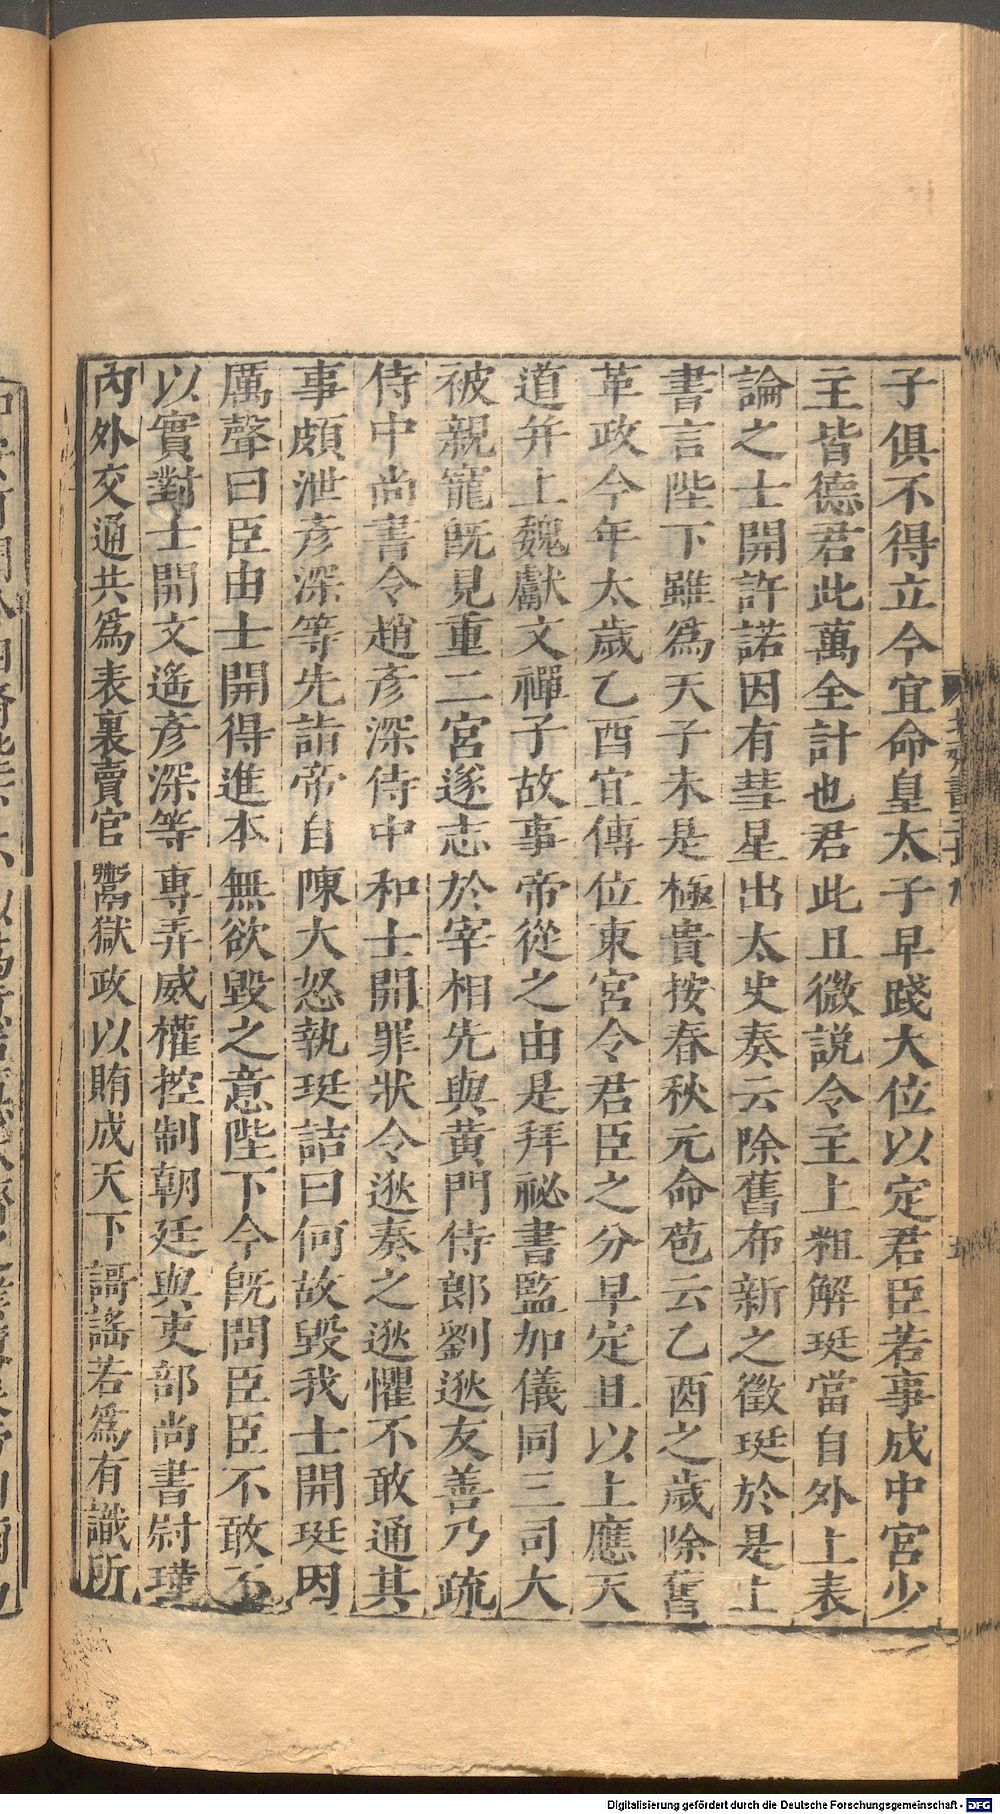 子俱不得立今宜命皇太子早踐大位以定君臣若事成中宮少
主皆德君此萬全計也君此且微說令主上粗解珽當自外上表
論之士開許諾因有彗星出太史奏云除舊布新之徵珽於是上
書言陛下雖為天子未是極貴按春秋元命苞云乙酉之歲除舊
革政今年太歲乙酉宜傳位東宮令君臣之分早定且以上應天
道并上魏獻文禪子故事帝從之由是拜祕書監加儀同三司大
被親寵既見重二宮遂志於宰相先與黃門侍郎劉逖友善乃疏
侍中尚書令趙彥深侍中和士開罪狀令逖奏之逖懼不敢通其
事頗泄彥深等先詣帝自陳大怒執珽詰曰何故毀我士開珽因
厲聲曰臣由士開得進本無欲毀之意陛下今既問臣臣不敢不
以實對士開文遙彥深等專弄威權控制朝廷與吏部尚書尉瑾
內外交通共為表裏賣官鬻獄政以賄成天下謌謠若為有識所
Digitalisierung gefördert durch die Deutsche Forschungsgemeinschaft - DFG